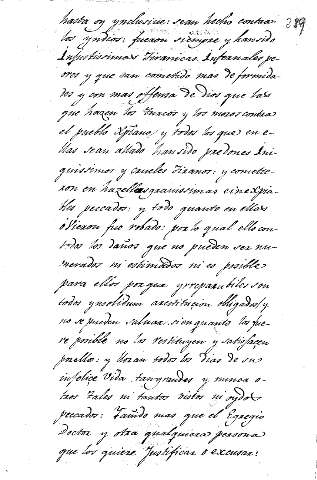 389
hasta oy ynclusive: sean hecho contra
los yndios: fueron siempre y han sido
Injustissimas Tiranicas Infernales pe
ores y que san cometido mas de formida
des y con mas offensa de Dios que las
que hazen los Turcos y los moros contra
el pueblo Xpiano y todos los que en e
llas sean allado han sido predones Ini
quissimos y crueles Tiranos: y cometie
ron en hazellas gravissimas e inexpia
bles peccados: y todo quanto en ellas
ovieron fue robado: por lo qual ello con
todos los daños que no pueden ser nu
merados ni estimados ni es posible
para ellos porque yrreparables son
todos ynsolidum a restitucion obligados y
no se pueden salvar, si en quanto les fue
re posible no los restituyen y satisfacen
por ello: y lloran todos los dias de su
infelice vida tan grandes y nunca o
tros tales ni tantos vistos ni oydos
peccados: mas que el Egregio
Doctor y otra qualquiera persona
que los quiere Justificar o excusar: